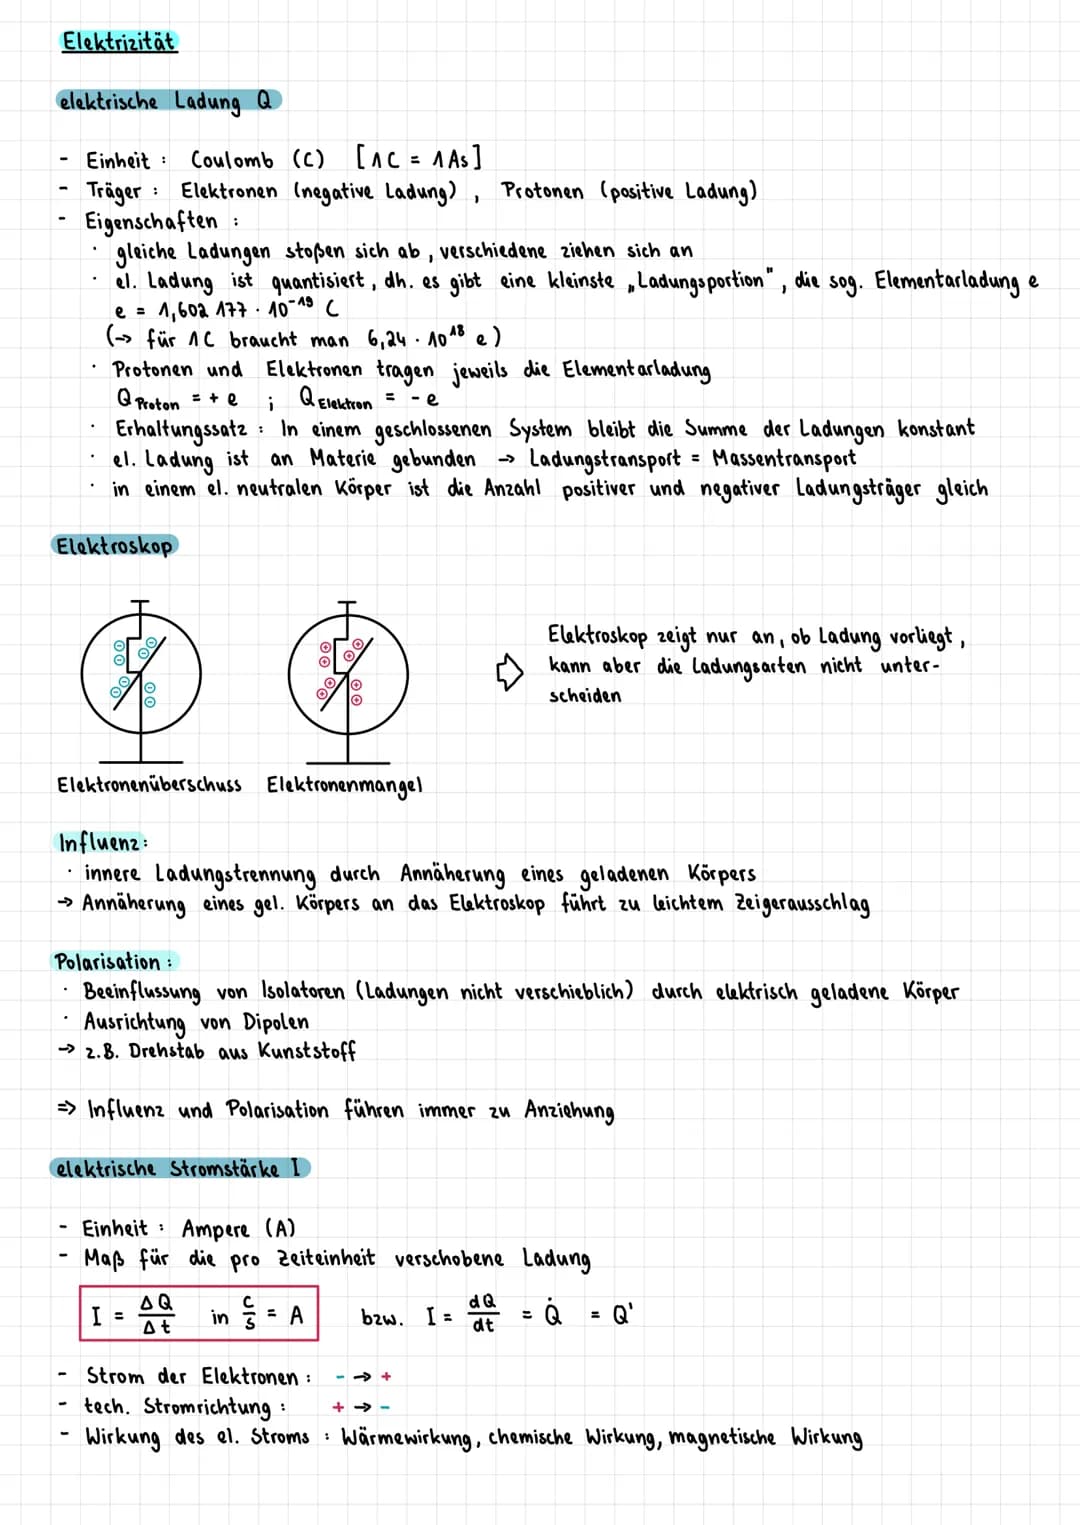 Elektrizität
elektrische Ladung Q
- Einheit : Coulomb (C) [1C = 1As]
- Träger : Elektronen (negative Ladung) , Protonen (positive Ladung)
- Eigenschaften :
· gleiche Ladungen stoßen sich ab , verschiedene ziehen sich an
· el. Ladung ist quantisiert , dh. es gibt eine kleinste „Ladungsportion" , die sog. Elementarladung e
e = 1,602 177 · 10⁻¹⁹ C
(→ für 1C braucht man 6,24 · 10¹⁸ e)
· Protonen und Elektronen tragen jeweils die Elementarladung
Q Proton = + e ; Q Elektron = - e
· Erhaltungssatz : In einem geschlossenen System bleibt die Summe der Ladungen konstant
· el. Ladung ist an Materie gebunden → Ladungstransport = Massentransport
· in einem el. neutralen Körper ist die Anzahl positiver und negativer Ladungsträger gleich
Elektroskop
Elektroskop zeigt nur an, ob Ladung vorliegt ,
kann aber die Ladungsarten nicht unter-
scheiden
Elektronenüberschuss Elektronenmangel
Influenz :
· innere Ladungstrennung durch Annäherung eines geladenen Körpers
→ Annäherung eines gel. Körpers an das Elektroskop führt zu leichtem Zeigerausschlag
Polarisation :
· Beeinflussung von Isolatoren (Ladungen nicht verschieblich) durch elektrisch geladene Körper
· Ausrichtung von Dipolen
→ z.B. Drehstab aus Kunststoff
⇒ Influenz und Polarisation führen immer zu Anziehung
elektrische Stromstärke I
- Einheit : Ampere (A)
- Maß für die pro Zeiteinheit verschobene Ladung
I = ΔQ/Δt in C/s = A bzw. I = dQ/dt = Q̇ = Q'
- Strom der Elektronen : - → +
- tech. Stromrichtung : + → -
- Wirkung des el. Stroms : Wärmewirkung, chemische Wirkung, magnetische Wirkung